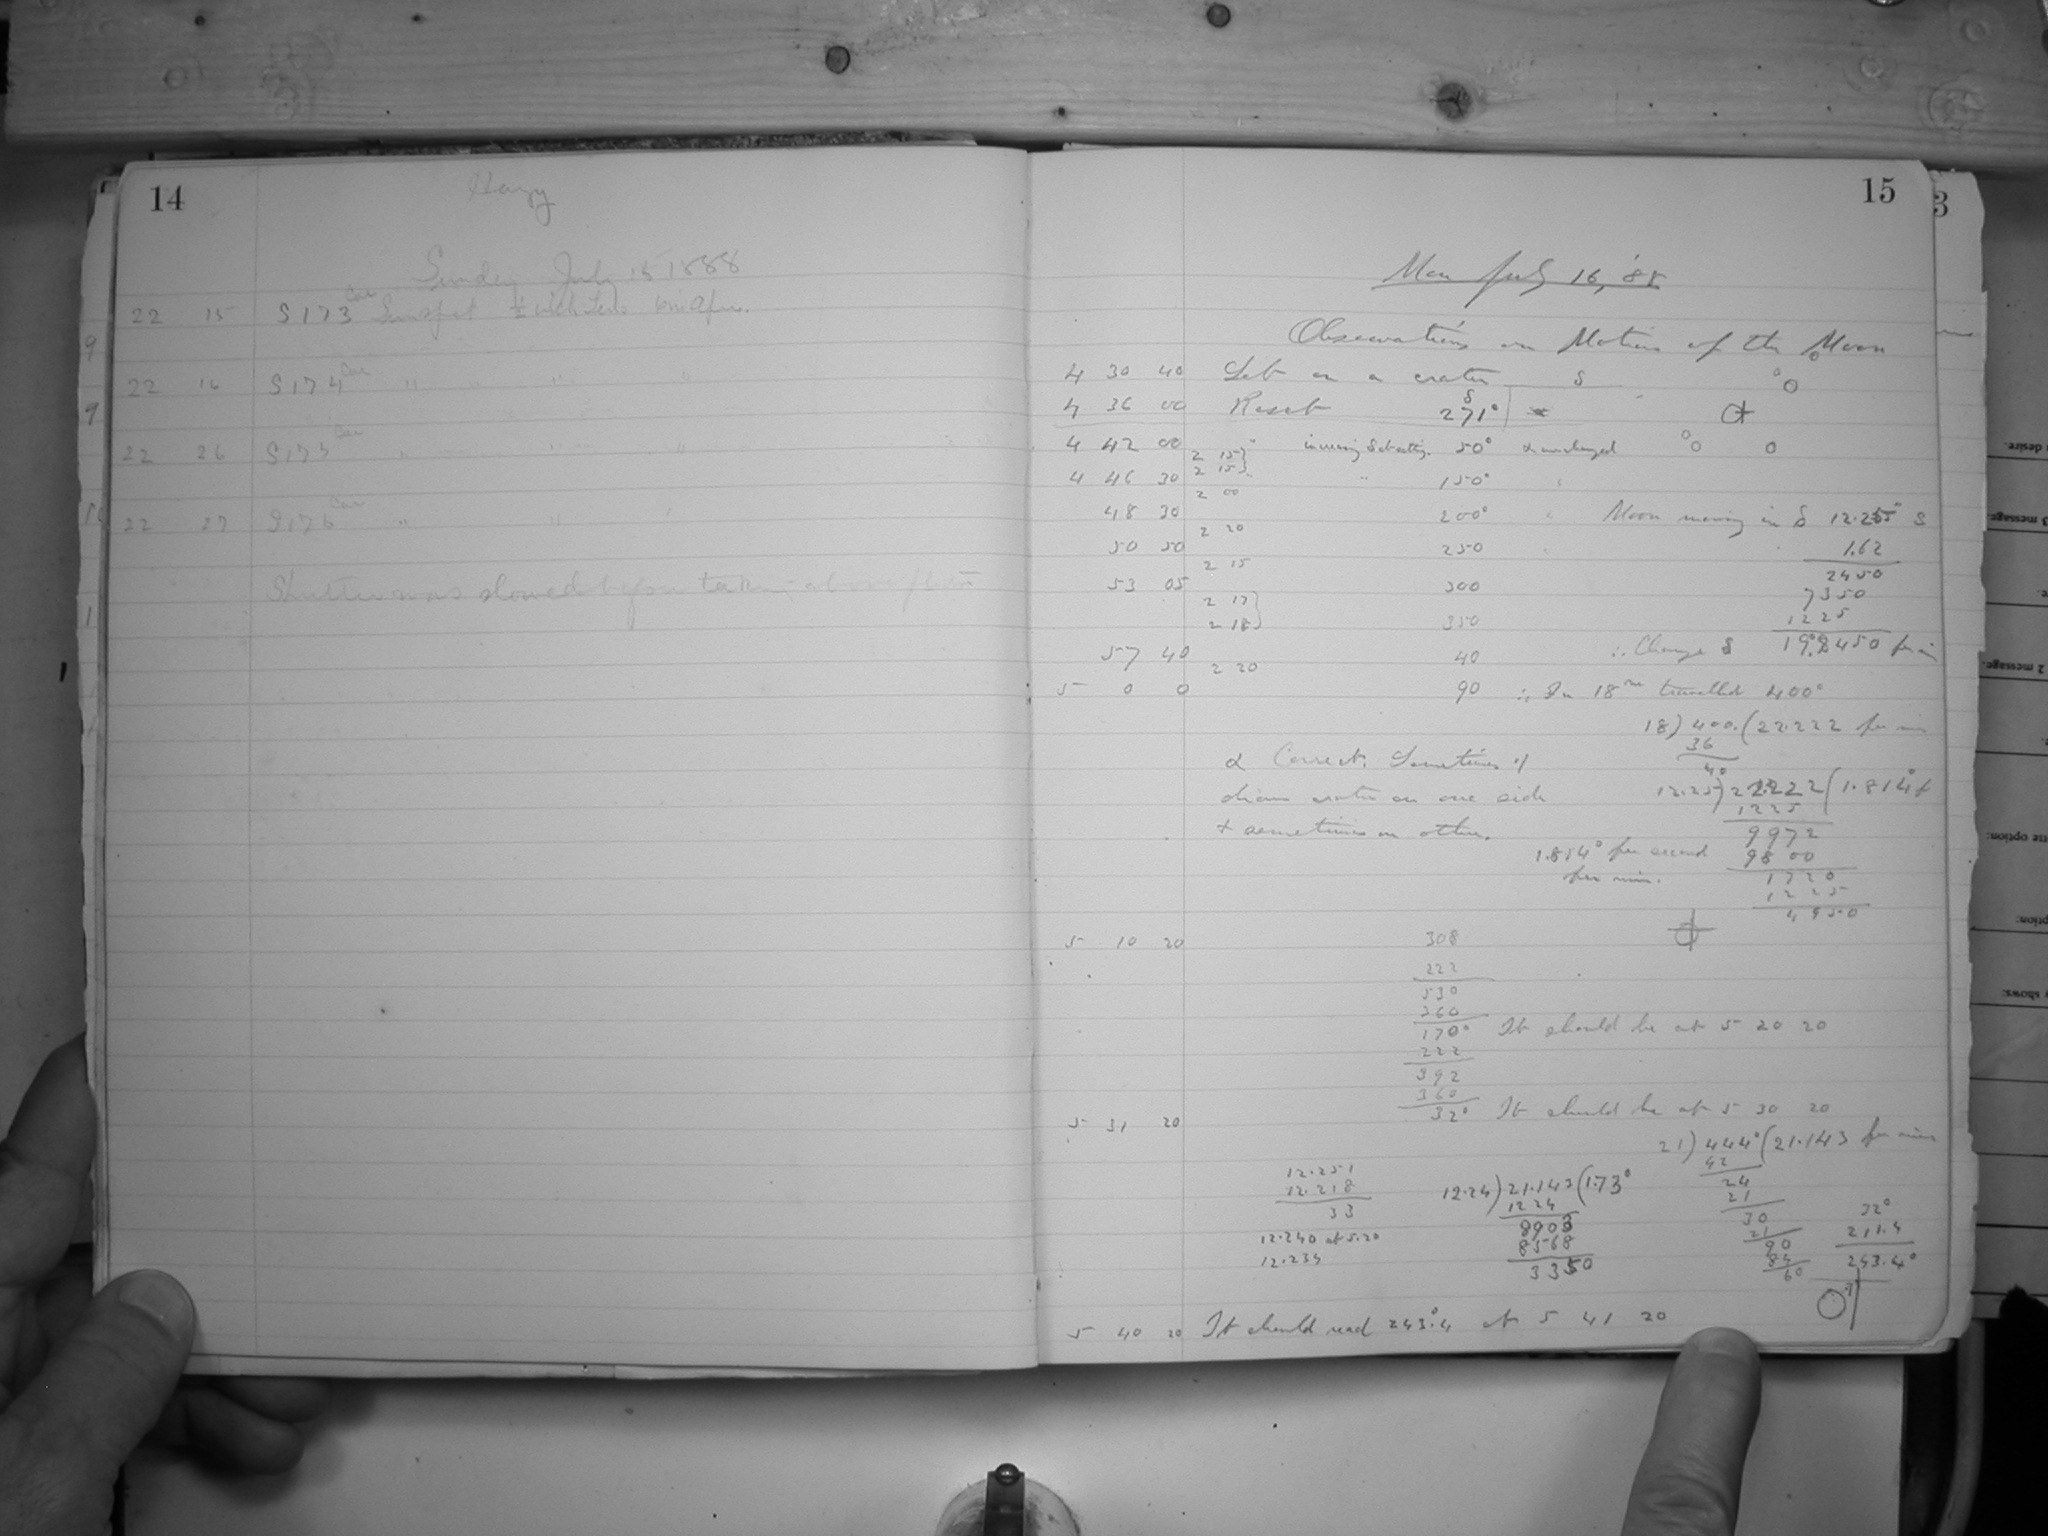 14
Hazy
Sunday July 15 1888
22 15 S173 Cor Sunspot ½ inch Lens 6 in Aper.
22 16 S174 Cor " " " "
22 26 S175 Cor " " "
22 27 S176 Cor " " "
Shutter was slowed before taking above
15
Mon July 16, '88
Observations on Motion of the Moon
4 30 40 Set on a crater δ
4 36 00 Reset δ 271°
4 42 00 increasing δ setting 50° α unchanged
2 15
4 46 30 2 15 " 150° "
2 00
48 30 200° " Moon moving in δ 12.25" S
2 20 1.62
50 50 250 " 2450
2 15 7350
53 05 300 1225
2 17
2 18 350 ∴ Change δ 19°.8450 per min
57 40 40
2 20
5 0 0 90 ∴ In 18m travelled 400°
18) 400. (22.222 per min
36
40
α Correct. Sometimes
chain crater on one side
+ sometimes on other.
12.25) 22.222 (1.814°
1225
9972
1.814° per second 9800
per min. 1720
1225
4950
5 10 20 308
222
530
360
170° It should be at 5 20 20
222
392
360
32° It should be at 5 30 20
5 31 20
21) 444° (21.143 per min
42
24
21
30
21
90
84
60
12.251
12.218
33
12.240 at 5.20
12.234
12.24) 21.143 (1.73°
1224
8903
8568
3350
32°
211.4
243.4°
5 40 20 It should read 243°.4 at 5 41 20
3
9
9
1
desire.
3 message
2 message.
use option:
option:
y shows: